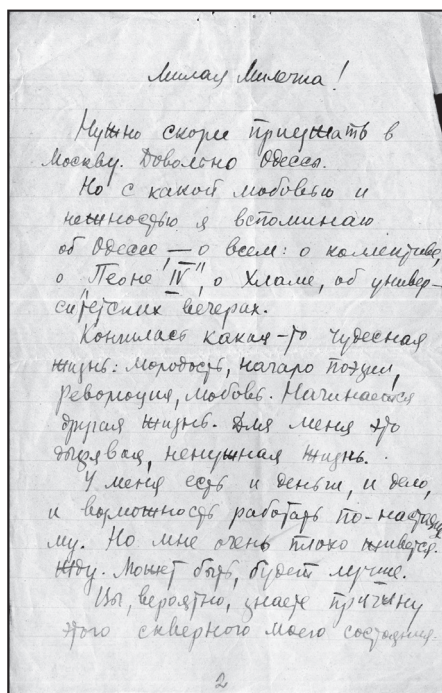 Милая Милечка!
Нужно скорее приезжать в
Москву. Довольно Одессы.
Но с какой любовью и
нежностью я вспоминаю
об Одессе — о всем: о коллективе,
о "Пеоне IV", о Хламе, об универ-
ситетских вечерах.
Кончилась какая-то чудесная
жизнь: молодость, начало поэзии,
революция, любовь. Начинается
другая жизнь. Для меня это
дырявая, ненужная жизнь.
У меня есть и деньги, и дело,
и возможность работать по-настояще
му. Но мне очень плохо живется.
Жду. Может быть, будет лучше.
Вы, вероятно, знаете причину
этого скверного моего состояния.
2